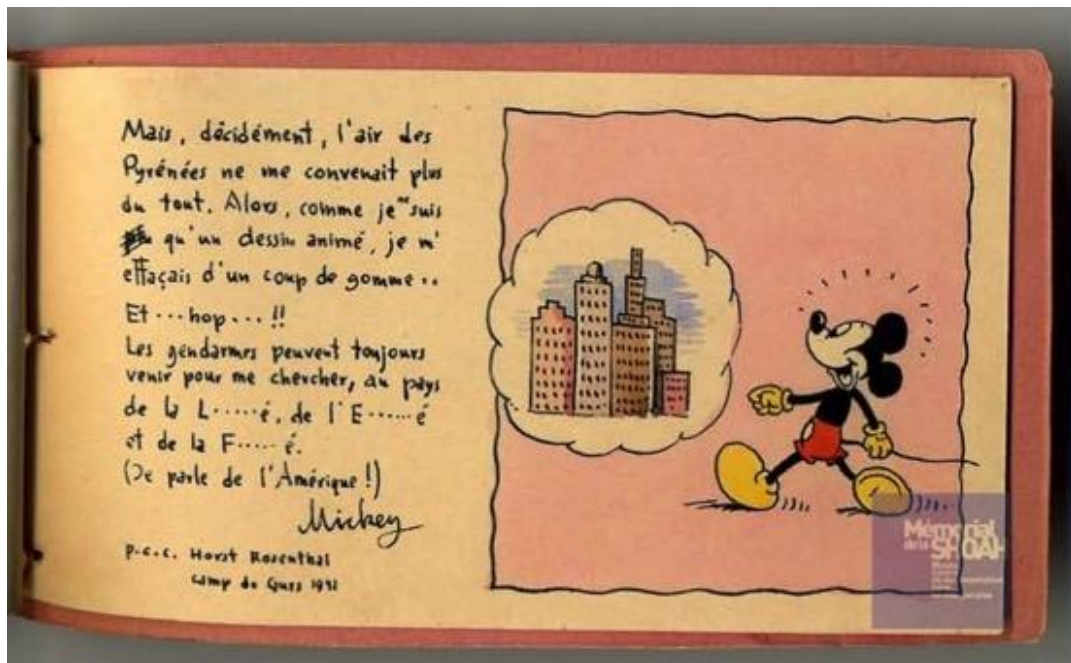 Mais, décidément, l'air des
Pyrénées ne me convenait plus
du tout. Alors, comme je ne suis
qu'un dessin animé, je m'
effaçais d'un coup de gomme..
Et ... hop ... !!
Les gendarmes peuvent toujours
venir pour me chercher, au pays
de la L.....é, de l'E......é
et de la F.....é.
(Je parle de l'Amérique!)
Mickey
p.c.c. Horst Rosenthal
Camp de Gurs 1942
Mémorial
de la SHOAH